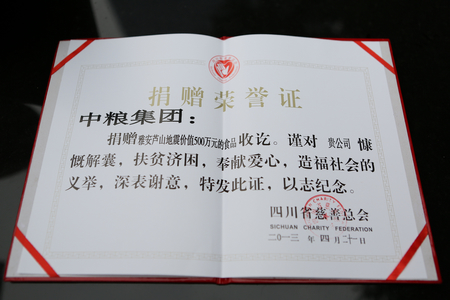 捐赠荣誉证
中粮集团：
捐赠雅安芦山地震价值500万元的食品收讫。谨对 贵公司 慷
慨解囊，扶贫济困，奉献爱心，造福社会的
义举，深表谢意，特发此证，以志纪念。
四川省慈善总会
SICHUAN CHARITY FEDERATION
二〇一三 年 四 月 二十 日